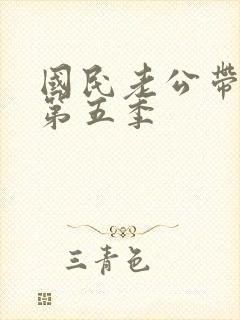 國民老公帶
第五季
三青色